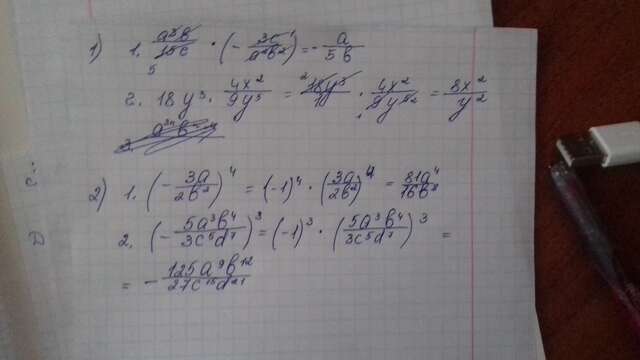 1) 1. a³b/15c · (-3c/a²b²) = -a/5b
2. 18y³ · 4x²/9y⁵ = 18y³ · 4x²/9y⁵ = 8x²/y²
2) 1. (-3a/2b²)⁴ = (-1)⁴ · (3a/2b²)⁴ = 81a⁴/16b⁸
2. (-5a³b⁴/3c⁵d⁷)³ = (-1)³ · (5a³b⁴/3c⁵d⁷)³ =
= -125a⁹b¹²/27c¹⁵d²¹